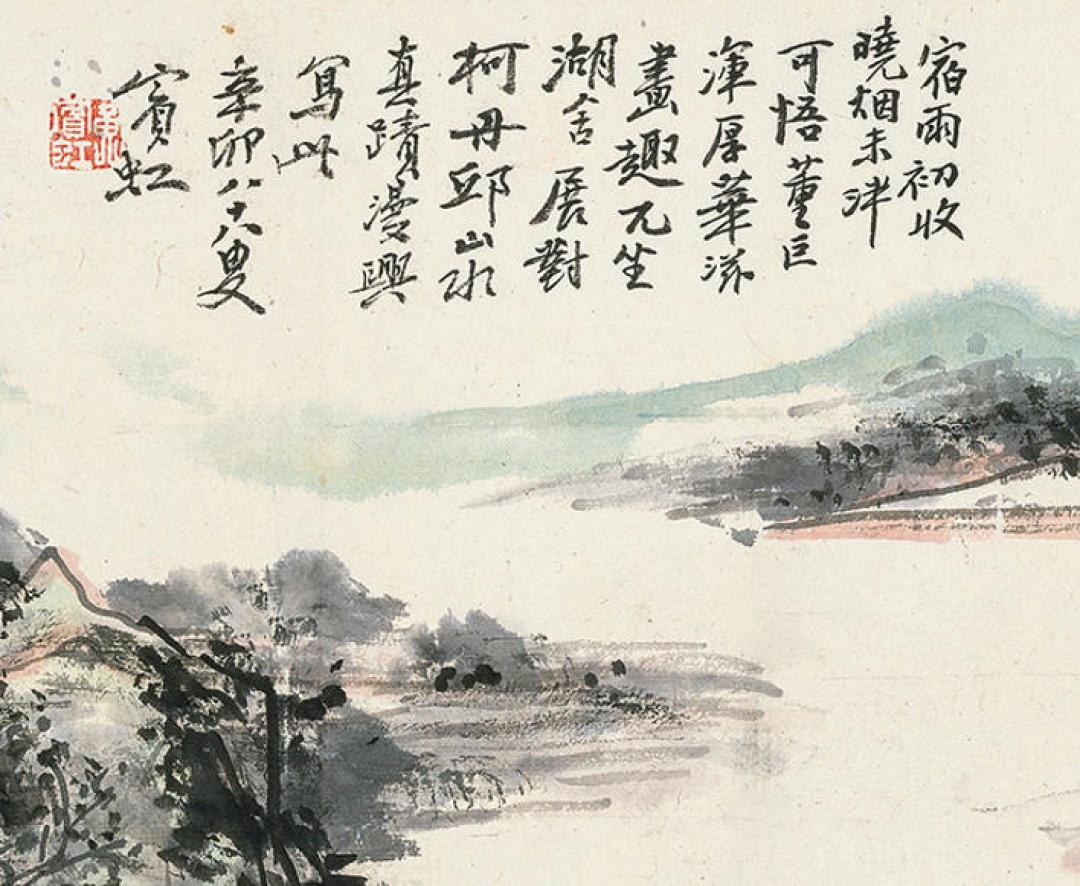 宿雨初收
曉烟未泮
可悟董巨
渾厚華滋
畫趣兀坐
湖舍展對
柯丹邱山水
真蹟漫興
寫此
辛卯八十八叟
賓虹